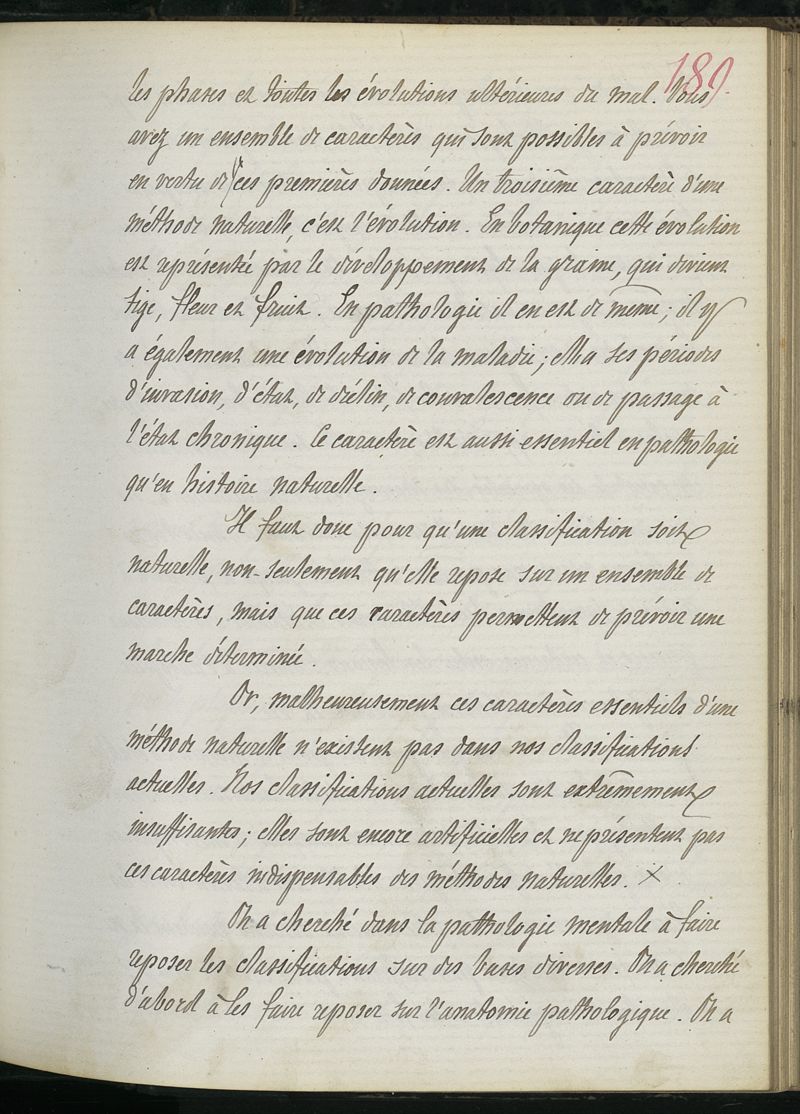 189
les phases et toutes les évolutions ultérieures du mal. Vous
avez un ensemble de caractères qui sont possibles à prévoir
en vertu de ces premières données. Un troisième caractère d'une
méthode naturelle, c'est l'évolution. En botanique cette évolution
est représentée par le développement de la graine, qui devient
tige, fleur et fruit. En pathologie il en est de même; il y
a également une évolution de la maladie; elle a ses périodes
d'invasion, d'état, de déclin, de convalescence ou de passage à
l'état chronique. Ce caractère est aussi essentiel en pathologie
qu'en histoire naturelle.
Il faut donc pour qu'une classification soit
naturelle, non-seulement qu'elle repose sur un ensemble de
caractères, mais que ces caractères permettent de prévoir une
marche déterminée.
Or, malheureusement ces caractères essentiels d'une
méthode naturelle n'existent pas dans nos classifications
actuelles. Nos classifications actuelles sont extrêmement
insuffisantes; elles sont encore artificielles et ne présentent pas
ces caractères indispensables des méthodes naturelles. X
On a cherché dans la pathologie mentale à faire
reposer les classifications sur des bases diverses. On a cherché
d'abord à les faire reposer sur l'anatomie pathologique. On a